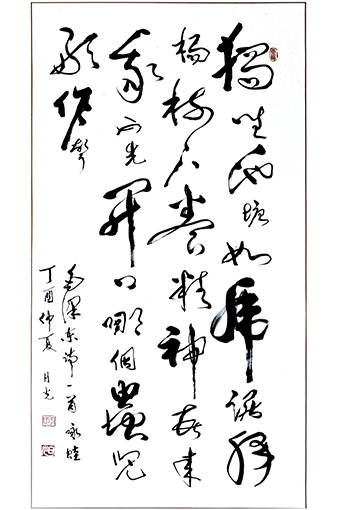 獨坐池塘如虎踞綠
楊樹下養精神春來
我不先開口哪個蟲兒
敢作聲
毛澤東詩一首詠蛙
丁酉仲夏月光